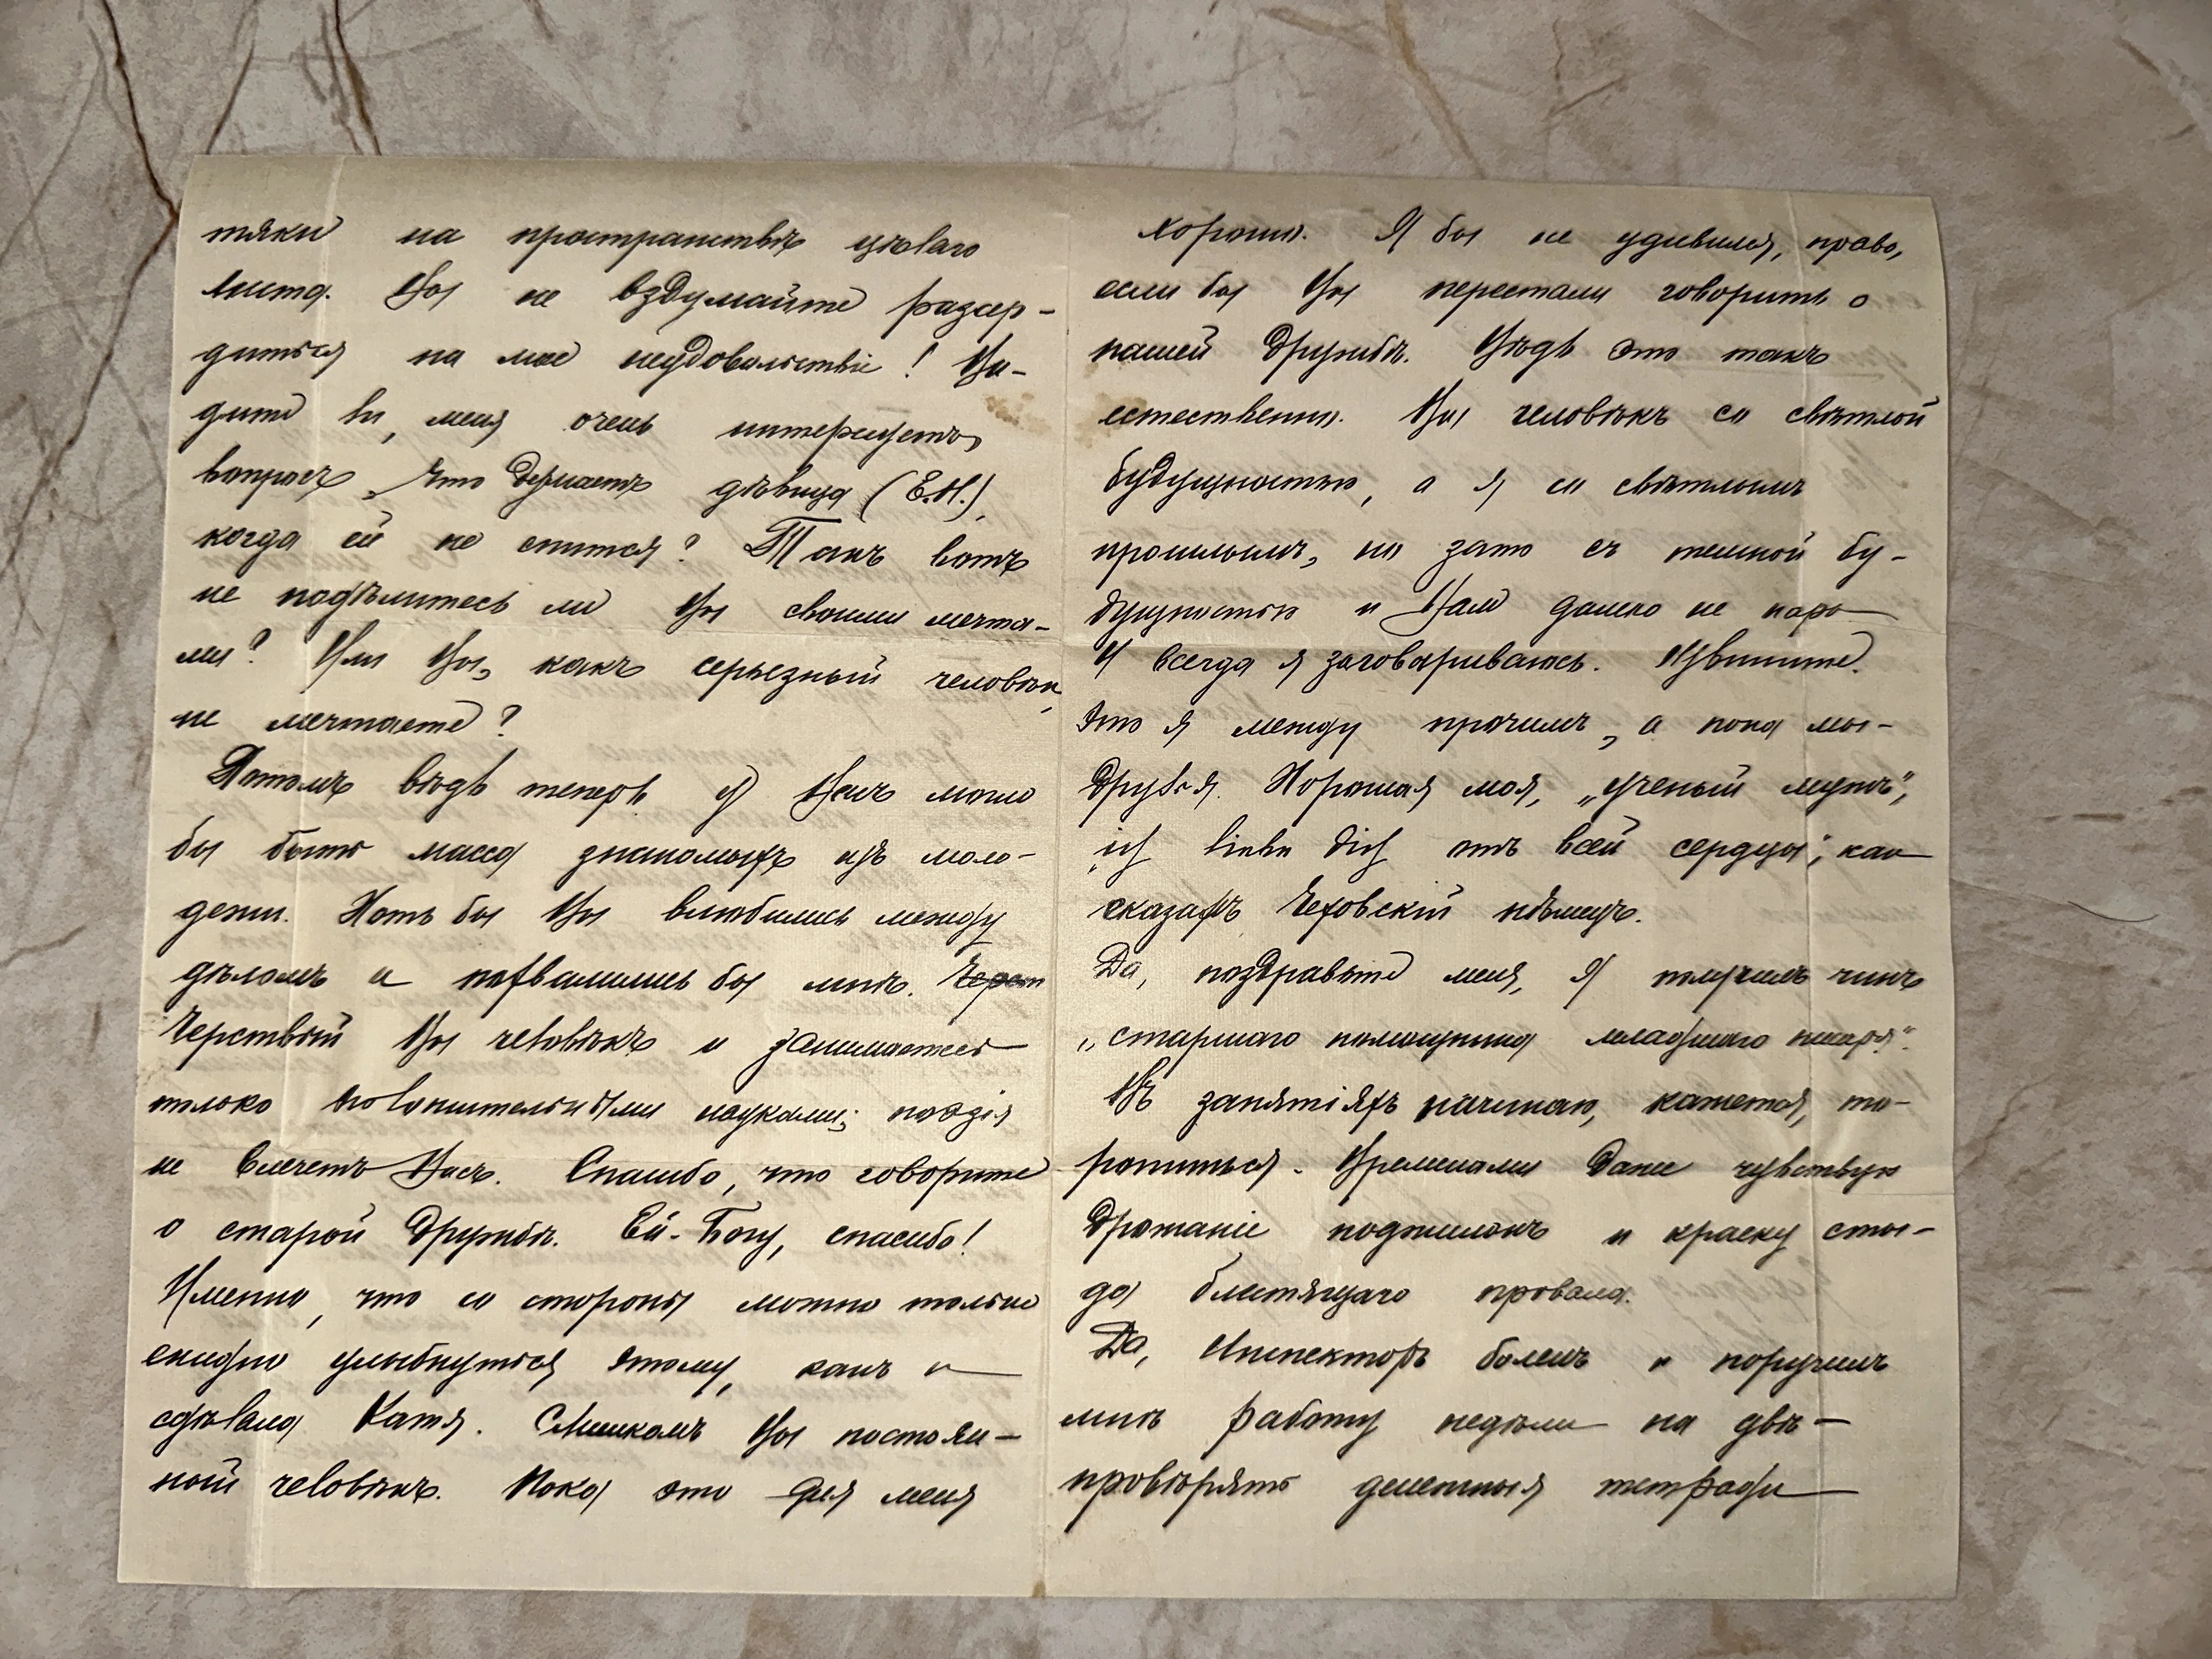 тяки на пространствѣ цѣлаго
листа. Вы не вздумайте разсер-
диться на мое неудовольствіе! Ви-
дите ли, меня очень интересуетъ,
вопросъ, что дѣлаетъ дѣвица (Е.Н.),
когда ей не спится? Такъ вотъ
не подѣлитесь ли Вы своими мечта-
ми? Или Вы, какъ серьезный человѣк,
не мечтаете?
Потомъ вѣдь теперь у Васъ могло
бы быть масса знакомыхъ изъ моло-
дежи. Хоть бы Вы влюбились между
дѣломъ и похвалились бы мнѣ. Черст
Черствый Вы человѣкъ и занимаетесь
только положительными науками; поэзія
не влечетъ Васъ. Спасибо, что говорите
о старой дружбѣ. Ей-Богу, спасибо!
Именно, что со стороны можно только
ехидно улыбнуться этому, какъ и
сдѣлала Катя. Слишкомъ Вы постоян-
ный человѣкъ. Пока это для меня
хорошо. Я бы не удивился, право,
если бы Вы перестали говорить о
нашей дружбѣ. Вѣдь это такъ
естественно. Вы человѣкъ со свѣтлой
будущностью, а я со свѣтлымъ
прошлымъ, но зато съ темной бу-
дущностью и Вам далеко не пара
И всегда я заговариваюсь. Извините.
Это я между прочимъ, а пока мы-
друзья. Хорошая моя, „ученый мужъ",
„ich liebe dich отъ всей сердцы", как
сказалъ Чеховскій нѣмецъ.
Да, поздравьте меня, я получилъ чинъ
„старшаго помощника младшаго писаря".
Въ занятіяхъ начинаю, кажется, то-
ропиться. Временами даже чувствую
дрожаніе поджилокъ и краску сты-
да блестящаго провала.
Да, Инспекторъ боленъ и поручилъ
мнѣ работу недѣли на двѣ -
провѣрять денежныя тетради